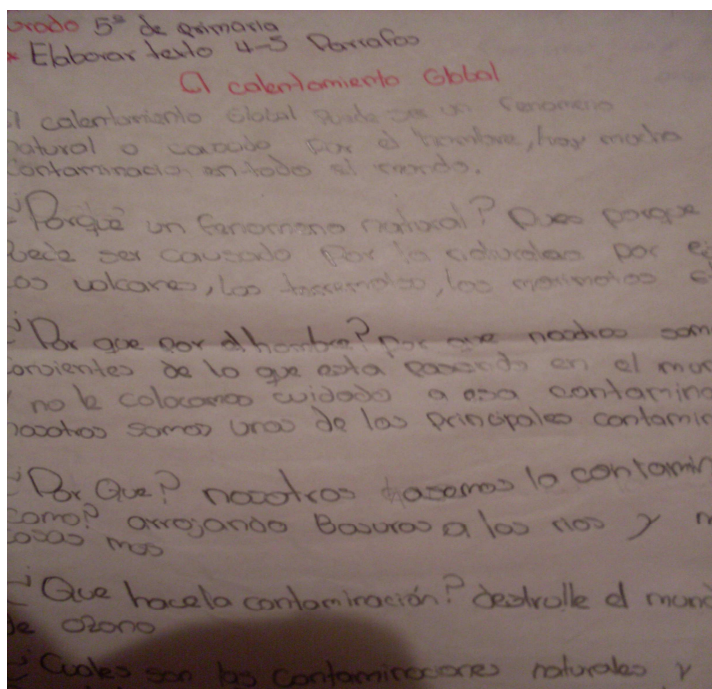 grado 5º de primaria
* Elaborar texto 4-5 Parrafos
El calentamiento Global
El calentamiento Global puede ser un fenomeno
natural o causado por el hombre, hay mucha
contaminacio en todo el mundo.
¿Porqué un fenomeno natural? Pues porque
puede ser causado por la naturaleza por ej
los volcanes, los terremotos, los maremotos e
¿Por que por el hombre? Por que nosotros som
consientes de lo que esta pasando en el mun
no le colocamos cuidado a esa contamina
nosotros somos unos de los principales contamin
¿Por Que? nosotros hasemos la contamin
como? arrojando Basuras a los rios y m
cosas mas
¿Que hace la contaminación? destrulle el mund
de ozono
¿Cuales son las contaminaciones naturales y